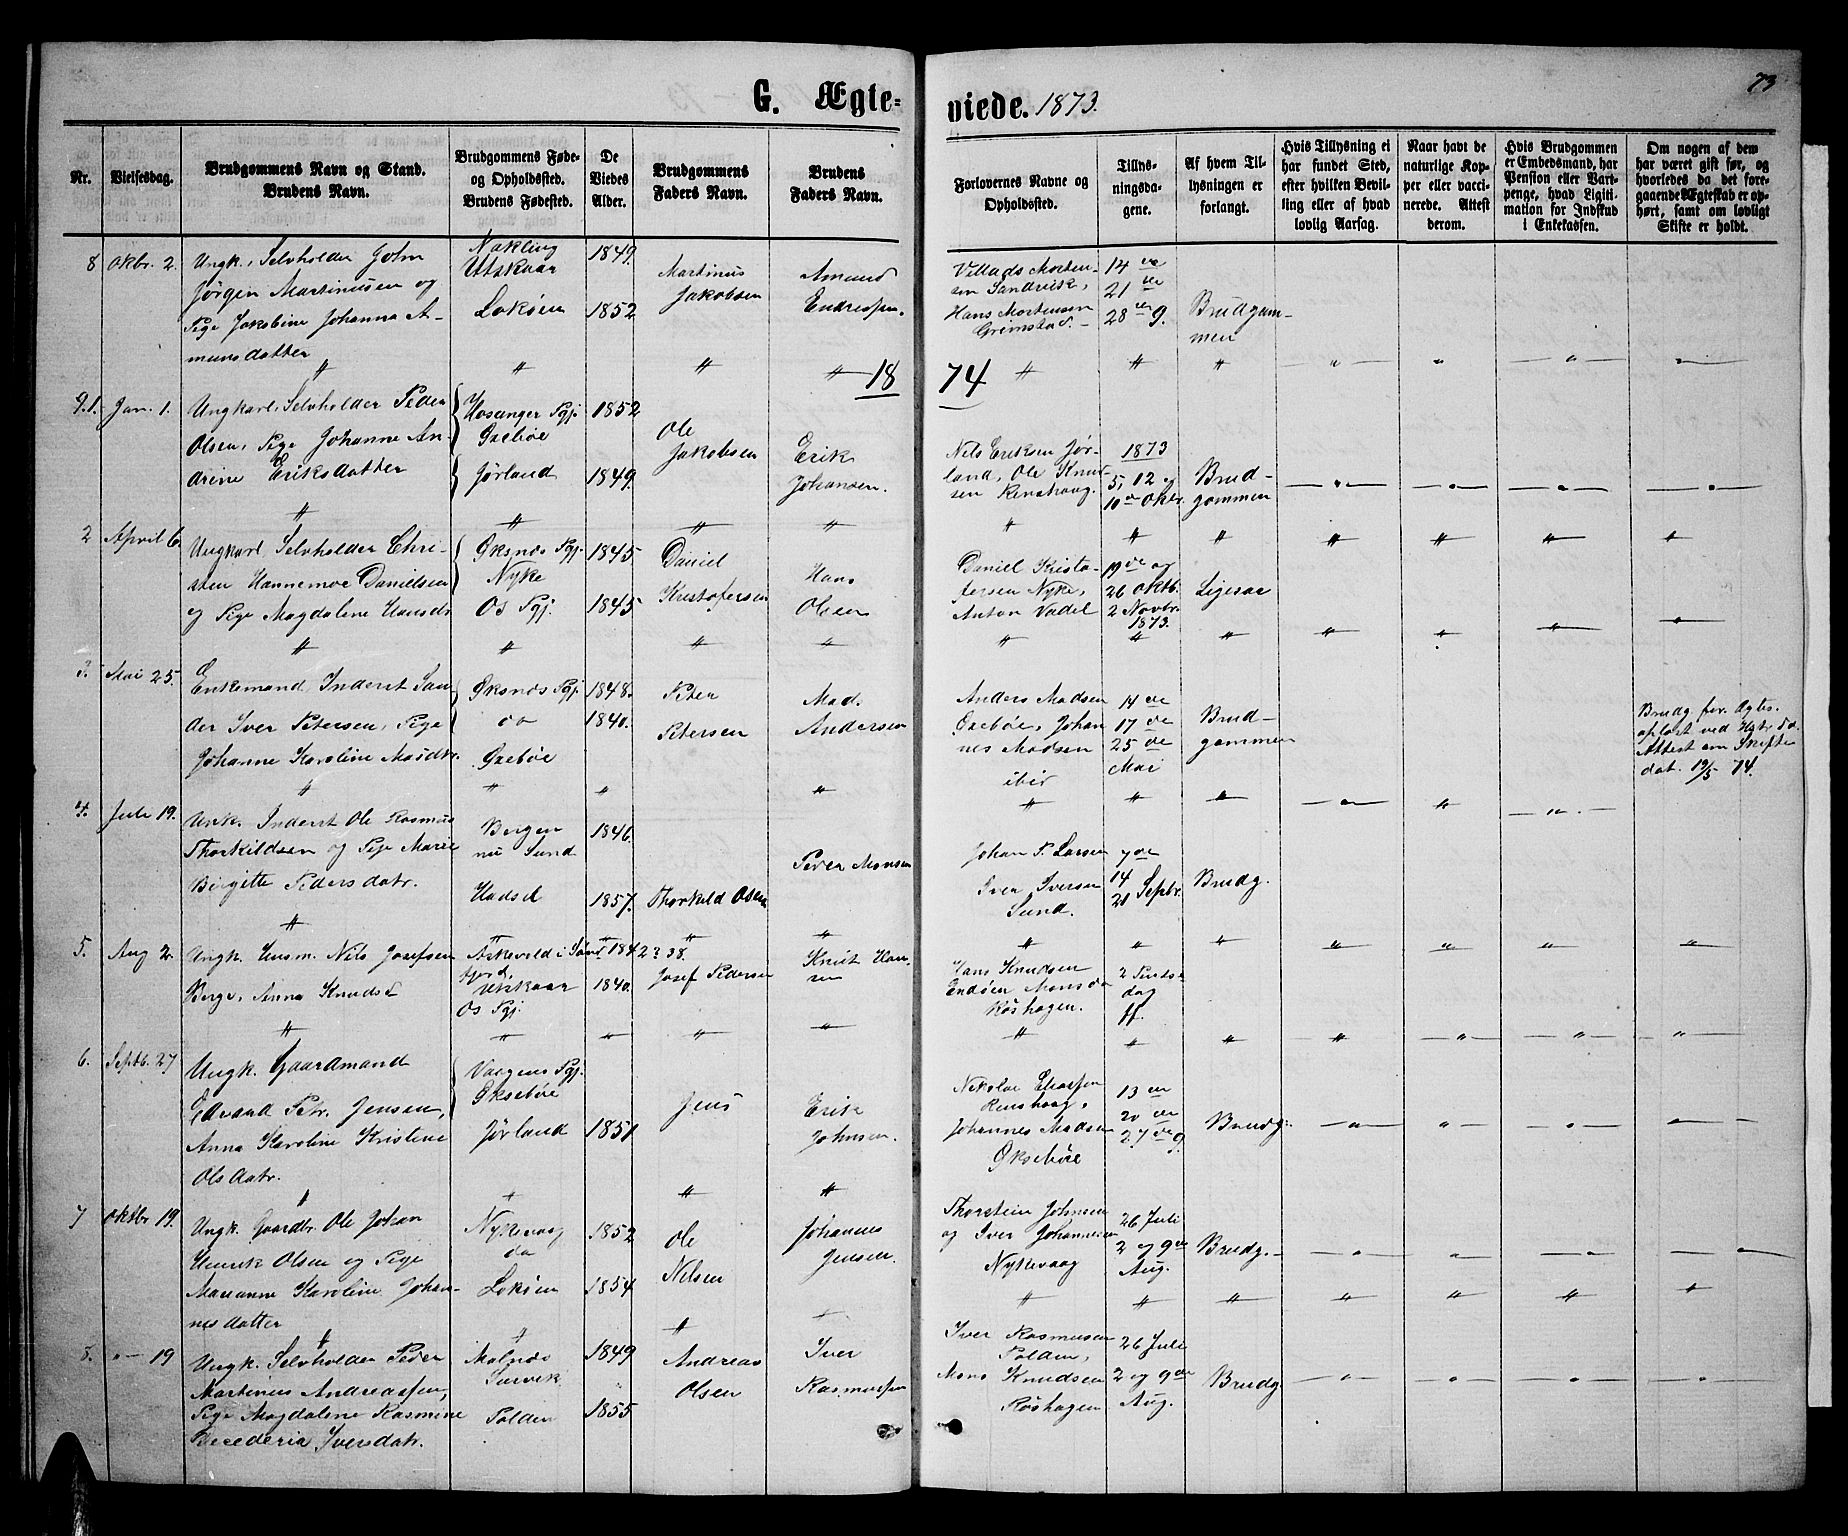 73
G. Ægteviede. 1873.
Nr.
Vielsesdag.
Brudgommens Navn og Stand.
Brudens Navn.
Brudgommens Føde-
og Opholdssted.
Brudens Fødested.
De
Viedes
Alder.
Brudgommens
Faders Navn.
Brudens
Faders Navn.
Forlovernes Navne og
Opholdssted.
Tillys-
ningsda-
gene.
Af hvem Til-
lysningen er
forlangt.
Hvis Tillysning ei
har fundet Sted,
efter hvilken Bevil-
ling eller af hvad
lovlig Aarsag.
Naar havt de
naturlige Kop-
per eller vacci-
nerede. Attest
derom.
Hvis Brudgommen
er Embedsmand, har
Pension eller Vart-
penge, hvad Ligiti-
mation for Indskud
i Enkekassen.
Om nogen af dem
har været gift før, og
hvorledes da det fore-
gaaende Ægteskab er op-
hørt, samt om lovligt
Skifte er holdt.
8 Oktbr. 2.
Ungk. Selvholder John
Jørgen Martinusen og
Pige Jakobine Johanna A-
munsdatter
Nøkling
Utskaar
Lokøen
1849.
1852
Martinus
Jakobsen
Amund
Endressen.
Villads Morten-
sen Sandvik,
Hans Mortensen
Grimstad.
14 de
21 de
28 de 9.
Brudgom-
men
1874
9.1. Jan. 1.
Ungkarl, Selvholder Peder
Olsen, Pige Johanne An-
drine Eriksdatter
Hosanger Pgj.
Oxebøe
Jørland
1852
1849.
Ole
Jakobsen
Erik
Johansen.
Nils Eriksen Jør-
land, Ole Knud-
sen Renshaag.
1873
5, 12 og
Brud-
gommen
2 April 6.
Ungkarl Selvholder Chri-
sten Hannemoe Danielsen
og Pige Magdalene Hansdr.
Øksnæs Pgj.
Nyke
Os Pgj.
1845
1845
Daniel
Kristofersen
Hans
Olsen
Daniel Kristo-
fersen Nyke,
Anton Vadel
19 de og
26 Oktb.
2 Novbr.
1873.
Ligesaa
3. Mai 25.
Enkemand Inderst San-
der Iver Petersen, Pige
Johanne Karoline Masdtr.
Øksnæs Pgj.
do
Oxebøe
1848.
1840.
Peter
Petersen
Mad.
Andersen
Anders Madsen
Oxebøe, Johan
nes Madsen
ibid
14 de
17 de
25 de
Mai
Brud-
gommen
Brudg. for. Ægtes.
opløst ved Hstr. Dø.
Attest om Skifte
dat. 19/5 74.
4. Juli 19.
Unk. Inderst Ole Rasmus
Thorkildsen og Pige Marie
Birgitte Pedersdatr.
Bergen
nu Sund
Hadsel
1846.
1857.
Thorkild Olsen
Peder Monsen
Johan P. Larsen
Iver Iversen
Sund.
7 de
14
21 Septbr.
Brudg.
5. Aug 2
Ungk. Husm. Nils Josefsen
Berge, Anna Knudsd
Utskaar
Os Pgj.
1842 ? 38.
1840.
Josef Pedersen
Knut Han-
sen
Hans Knudsen
Endøen
Røshagen.
6. Septb. 27
Ungk. Gaardmand
Edvard Petr. Jensen,
Anna Karoline Kristine
Olsdatr.
Vaagens Pgj.
Øksebøe
Jørland
1851.
Jens
Erik
Johnsen.
Nikolai Eliassen
Renshaag,
Johannes Madsen
Øksebøe
13 de
20 de
27 de 9.
Brudg.
7 Oktbr. 19.
Ungk. Gaardbr. Ole Johan
Henrik Olsen og Pige
Marianne Karoline Johan-
nesdatter
Nykevaag
do
Lokøen
1852
1854
Ole
Nilsen
Johannes
Jensen.
Thorstein Johnsen
og Iver Johannesen
Nykevaag
26 Juli
2 og 9 de
Aug.
Brudg.
8. " 19
Ungk. Selvholder Peder
Martinus Andreassen,
Pige Magdalene Rasmine
Iversdatr.
Malnæs
Polden
1849
1855
Andreas
Olsen
Iver
Rasmussen
Iver Rasmusen
Polden,
Mons Knudsen
Røshagen
26 Juli
2 og 9 de
Aug.
Brudg.